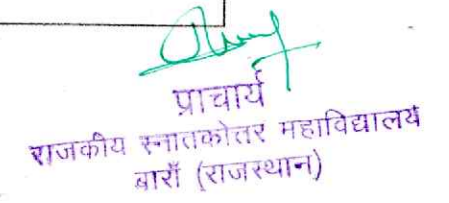 प्राचार्य
राजकीय स्नातकोत्तर महाविद्यालय
बाराँ (राजस्थान)